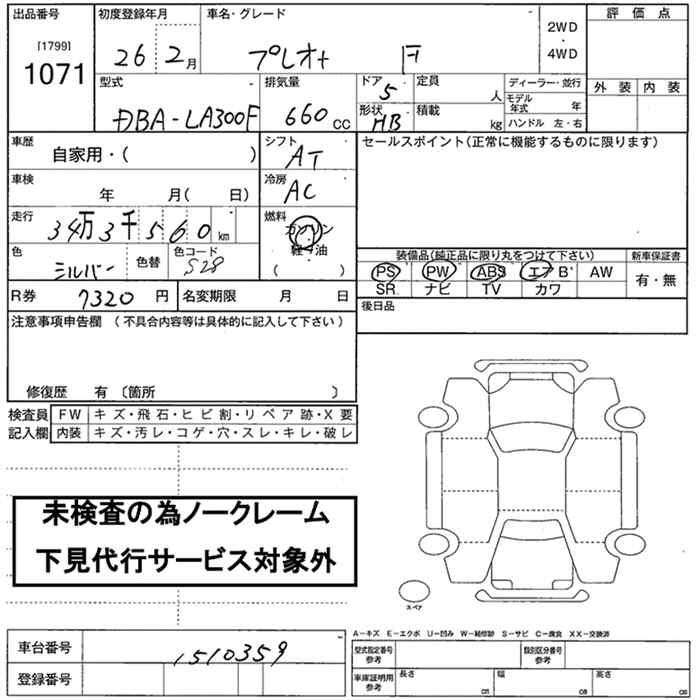 出品番号 初度登録年月 車名・グレード 評価点
[1799]
1071
26 2月 プレオ+ F
2WD
・
4WD
外装 内装
型式 排気量 ドア 定員 ディーラー・並行
DBA-LA300F 660cc 5 人 モデル年式 年
形状 HB 積載 kg ハンドル 左・右
車歴 シフト セールスポイント(正常に機能するものに限ります)
自家用・( ) AT
車検 冷房
年 月( 日) AC
走行 燃料
34万3千560km ガソリン
軽油
( )
色 色替 色コード
シルバー S28
装備品(純正品に限り丸をつけて下さい) 新車保証書
PS PW ABS エアB AW 有・無
SR ナビ TV カワ
R券 7320円 名変期限 月 日 後日品
注意事項申告欄(不具合内容等は具体的に記入して下さい)
修復歴 有〔箇所 〕
検査員 FW キズ・飛石・ヒビ割・リペア跡・X要
記入欄 内装 キズ・汚レ・コゲ・穴・スレ・キレ・破レ
未検査の為ノークレーム
下見代行サービス対象外
スペア
A-キズ E-エクボ U-凹み W-補修跡 S-サビ C-腐食 XX-交換済
車台番号 1510359
登録番号
型式指定番号 参考 類別区分番号 参考
車庫証明用 参考 長さ cm 幅 cm 高さ cm